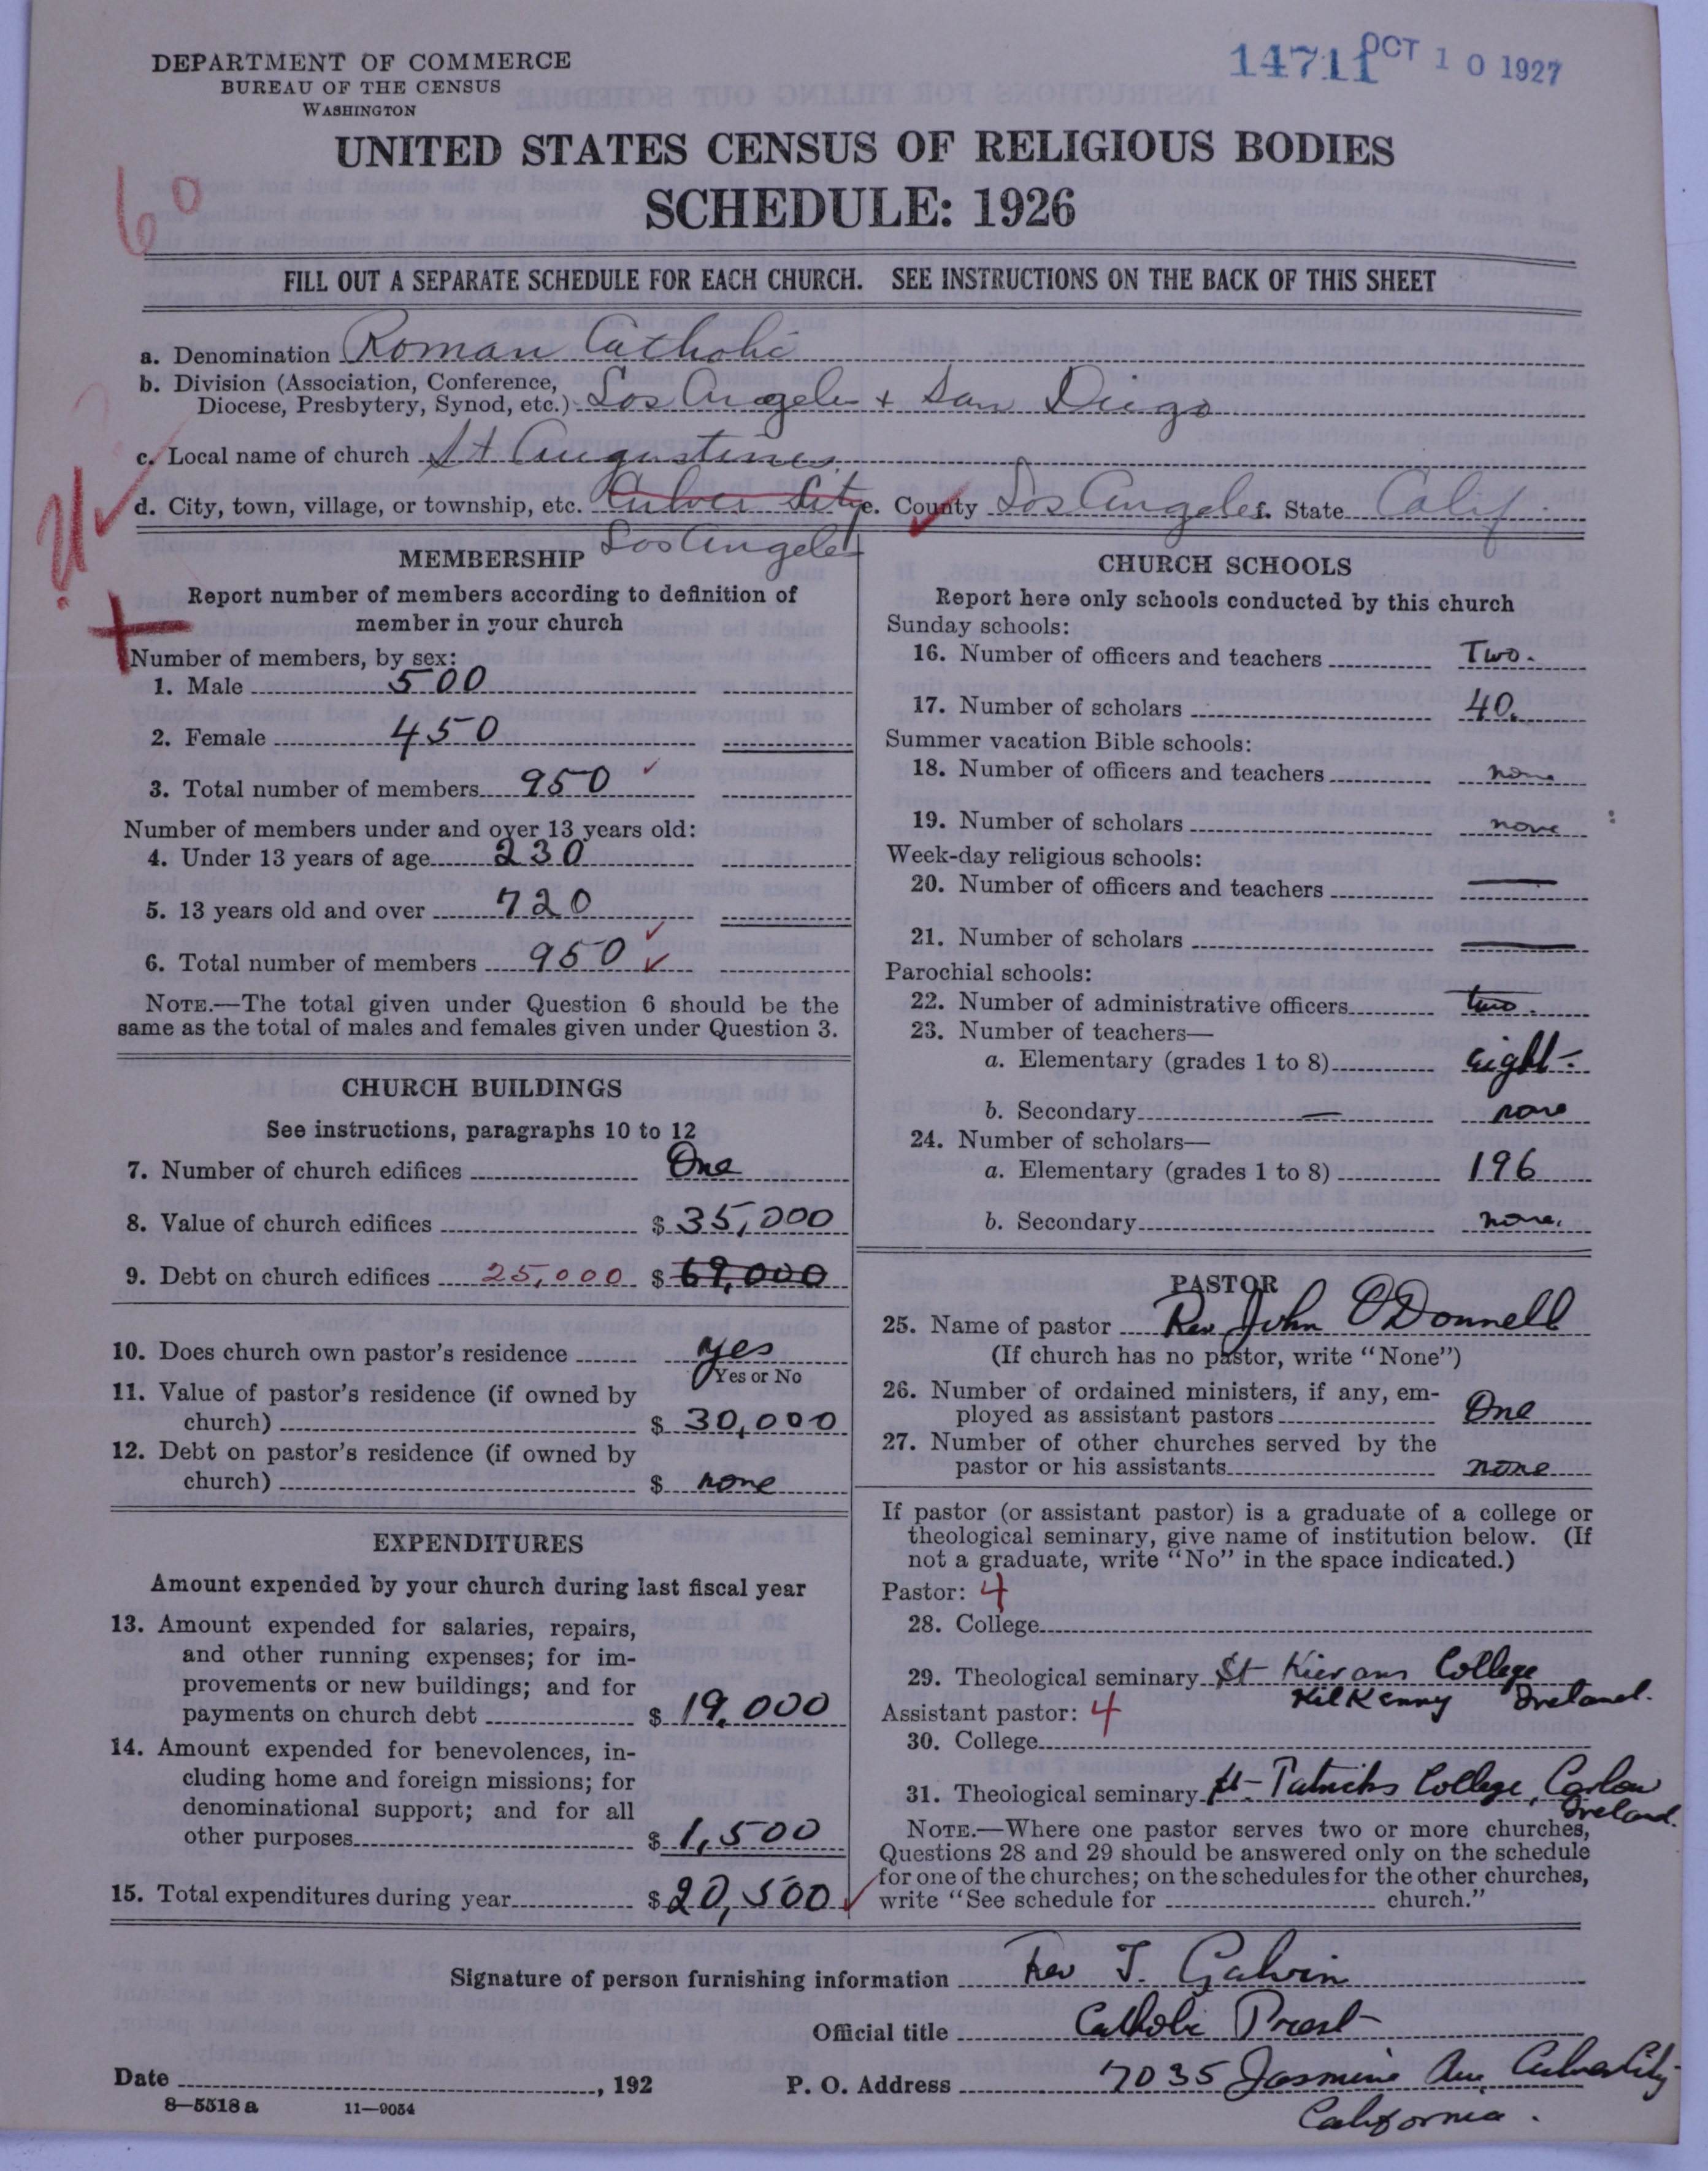 DEPARTMENT OF COMMERCE
BUREAU OF THE CENSUS
WASHINGTON
14711 OCT 10 1927
UNITED STATES CENSUS OF RELIGIOUS BODIES
SCHEDULE: 1926
60
FILL OUT A SEPARATE SCHEDULE FOR EACH CHURCH. SEE INSTRUCTIONS ON THE BACK OF THIS SHEET
a. Denomination Roman Catholic
b. Division (Association, Conference, Diocese, Presbytery, Synod, etc.) Los Angeles + San Diego
c. Local name of church St Augustines
d. City, town, village, or township, etc. Culver City e. County Los Angeles f. State Calif.
Los Angeles
MEMBERSHIP
Report number of members according to definition of
member in your church
Number of members, by sex:
1. Male 500
2. Female 450
3. Total number of members 950
Number of members under and over 13 years old:
4. Under 13 years of age 230
5. 13 years old and over 720
6. Total number of members 950
NOTE.—The total given under Question 6 should be the
same as the total of males and females given under Question 3.
CHURCH BUILDINGS
See instructions, paragraphs 10 to 12
7. Number of church edifices One
8. Value of church edifices $ 35,000
9. Debt on church edifices 25,000 $ 69,000
10. Does church own pastor's residence yes
Yes or No
11. Value of pastor's residence (if owned by
church) $ 30,000
12. Debt on pastor's residence (if owned by
church) $ none
EXPENDITURES
Amount expended by your church during last fiscal year
13. Amount expended for salaries, repairs,
and other running expenses; for im-
provements or new buildings; and for
payments on church debt $ 19,000
14. Amount expended for benevolences, in-
cluding home and foreign missions; for
denominational support; and for all
other purposes $ 1,500
15. Total expenditures during year $ 20,500
CHURCH SCHOOLS
Report here only schools conducted by this church
Sunday schools:
16. Number of officers and teachers Two.
17. Number of scholars 40.
Summer vacation Bible schools:
18. Number of officers and teachers none
19. Number of scholars none
Week-day religious schools:
20. Number of officers and teachers —
21. Number of scholars —
Parochial schools:
22. Number of administrative officers two.
23. Number of teachers—
a. Elementary (grades 1 to 8) eight -
b. Secondary — none
24. Number of scholars—
a. Elementary (grades 1 to 8) 196
b. Secondary none.
PASTOR
25. Name of pastor Rev John O'Donnell
(If church has no pastor, write "None")
26. Number of ordained ministers, if any, em-
ployed as assistant pastors One
27. Number of other churches served by the
pastor or his assistants none
If pastor (or assistant pastor) is a graduate of a college or
theological seminary, give name of institution below. (If
not a graduate, write "No" in the space indicated.)
Pastor: 4
28. College
29. Theological seminary St Kierans College
Kilkenny Ireland.
Assistant pastor: 4
30. College
31. Theological seminary St- Patricks College, Carlow
Ireland.
NOTE.—Where one pastor serves two or more churches,
Questions 28 and 29 should be answered only on the schedule
for one of the churches; on the schedules for the other churches,
write "See schedule for church."
Signature of person furnishing information Rev T. Galvin
Official title Catholic Priest
Date , 192 P. O. Address 7035 Jasmine Ave, Culver City
California.
8—5518 a 11—9054